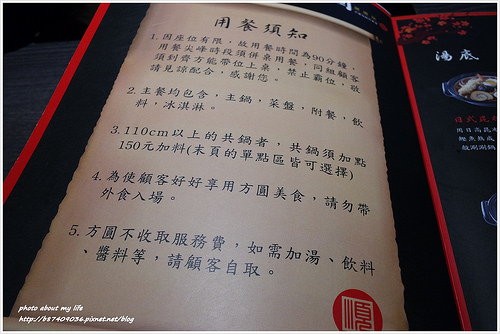 用餐須知
1. 因座位有限，故用餐時間為90分鐘，
用餐尖峰時段須併桌用餐，同組顧客
須到齊方能帶位上桌，禁止霸位，敬
請見諒配合，感謝您。
2. 主餐均包含，主鍋，菜盤，附餐，飲
料，冰淇淋。
3.110cm以上的共鍋者，共鍋須加點
150元加料(末頁的單點區皆可選擇)
4. 為使顧客好好享用方圓美食，請勿帶
外食入場。
5. 方圓不收取服務費，如需加湯、飲料
、醬料等，請顧客自取。
湯底
日式昆
用日高昆
鰹魚熬成
般涮涮鍋
photo about my life
http://b87409036.pixnet.net/blog